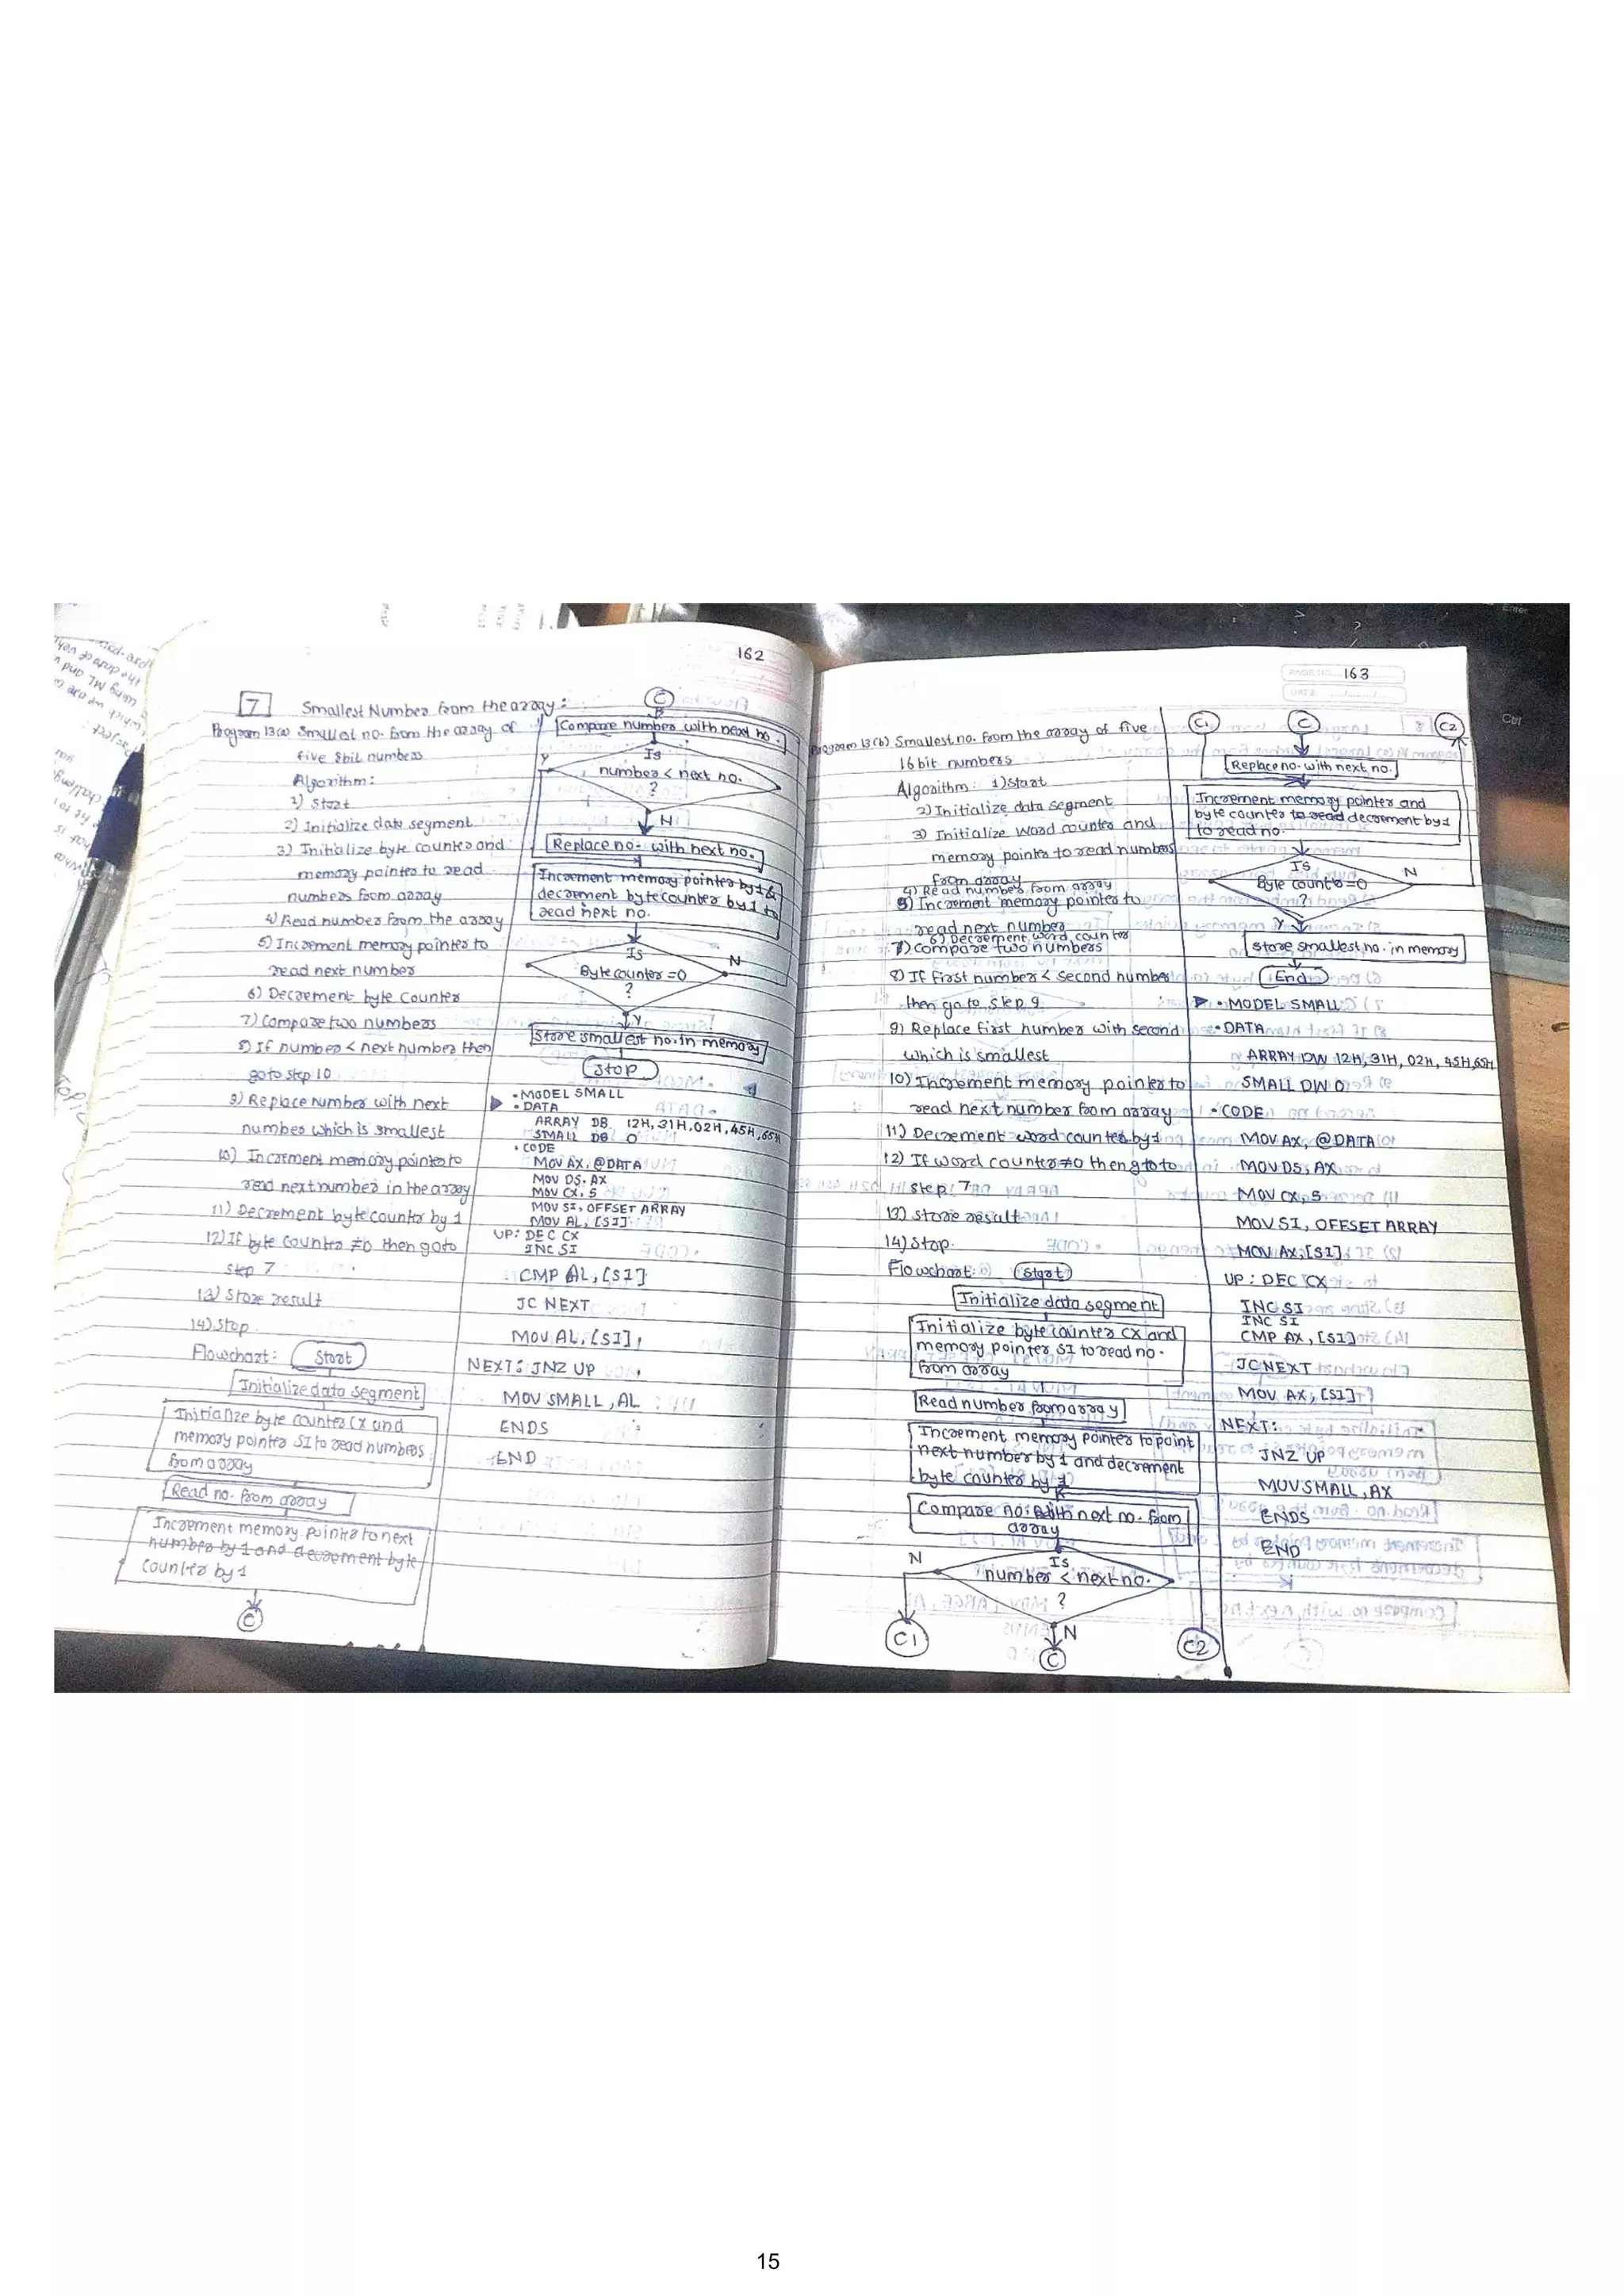 162
7 Smallest Number from the array:
Program 13(a) Smallest no. from the array of
five 8bit numbers
Algorithm:
1) Start
2) Initialize data segment
3) Initialize byte counter and
memory pointer to read
numbers from array
4) Read number from the array
5) Increment memory pointer to
read next number
6) Decrement byte counter
7) Compare two numbers
8) If number < next number then
goto step 10
9) Replace number with next
number which is smallest
10) Increment memory pointer to
read next number in the array
11) Decrement byte counter by 1
12) If byte counter ≠0 then goto
step 7
13) Store result
14) Stop
Flowchart: Start
Initialize data segment
Initialize byte counter CX and
memory pointer SI to read numbers
from array
Read no. from array
Increment memory pointer to next
number by 1 and decrement byte
counter by 1
C
C
Compare number with next no.
Is
number < next no.
?
Y
N
Replace no. with next no.
Increment memory pointer by 1 &
decrement byte counter by 1 to
read next no.
Is
Byte counter =0
?
N
Y
Store smallest no. in memory
Stop
.MODEL SMALL
.DATA
ARRAY DB 12H,31H,02H,45H,65H
SMALL DB 0
.CODE
MOV AX,@DATA
MOV DS,AX
MOV CX,5
MOV SI,OFFSET ARRAY
MOV AL,[SI]
UP: DEC CX
INC SI
CMP AL,[SI]
JC NEXT
MOV AL,[SI]
NEXT: JNZ UP
MOV SMALL,AL
ENDS
END
163
Program 13(b) Smallest no. from the array of five
16 bit numbers
Algorithm: 1) Start
2) Initialize data segment
3) Initialize word counter and
memory pointer to read numbers
from array
4) Read number from array
5) Increment memory pointer to
read next number
6) Decrement word counter
7) Compare two numbers
8) If first number < second number
then go to step 9
9) Replace first number with second
which is smallest
10) Increment memory pointer to
read next number from array
11) Decrement word counter by 1
12) If word counter≠0 then goto to
step 7
13) Store result
14) Stop.
Flowchart: Start
Initialize data segment
Initialize byte counter CX and
memory pointer SI to read no.
from array
Read number from array
Increment memory pointer to point
next number by 1 and decrement
byte counter by 1
Compare no. with next no. from
array
Is
number < next no.
?
N
N
C1
C
C2
C1
C
C2
Replace no. with next no.
Increment memory pointer and
byte counter to read decrement by 1
to read no.
Is
Byte counter=0
?
N
Y
Store smallest no. in memory
End
.MODEL SMALL
.DATA
ARRAY DW 12H,31H,02H,45H,65H
SMALL DW 0
.CODE
MOV AX,@DATA
MOV DS,AX
MOV CX,5
MOV SI,OFFSET ARRAY
MOV AX,[SI]
UP: DEC CX
INC SI
INC SI
CMP AX,[SI]
JC NEXT
MOV AX,[SI]
NEXT:
JNZ UP
MOV SMALL,AX
ENDS
END
15